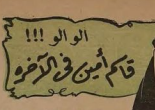 الو الو !!!
قاكم أمين فى الآخره